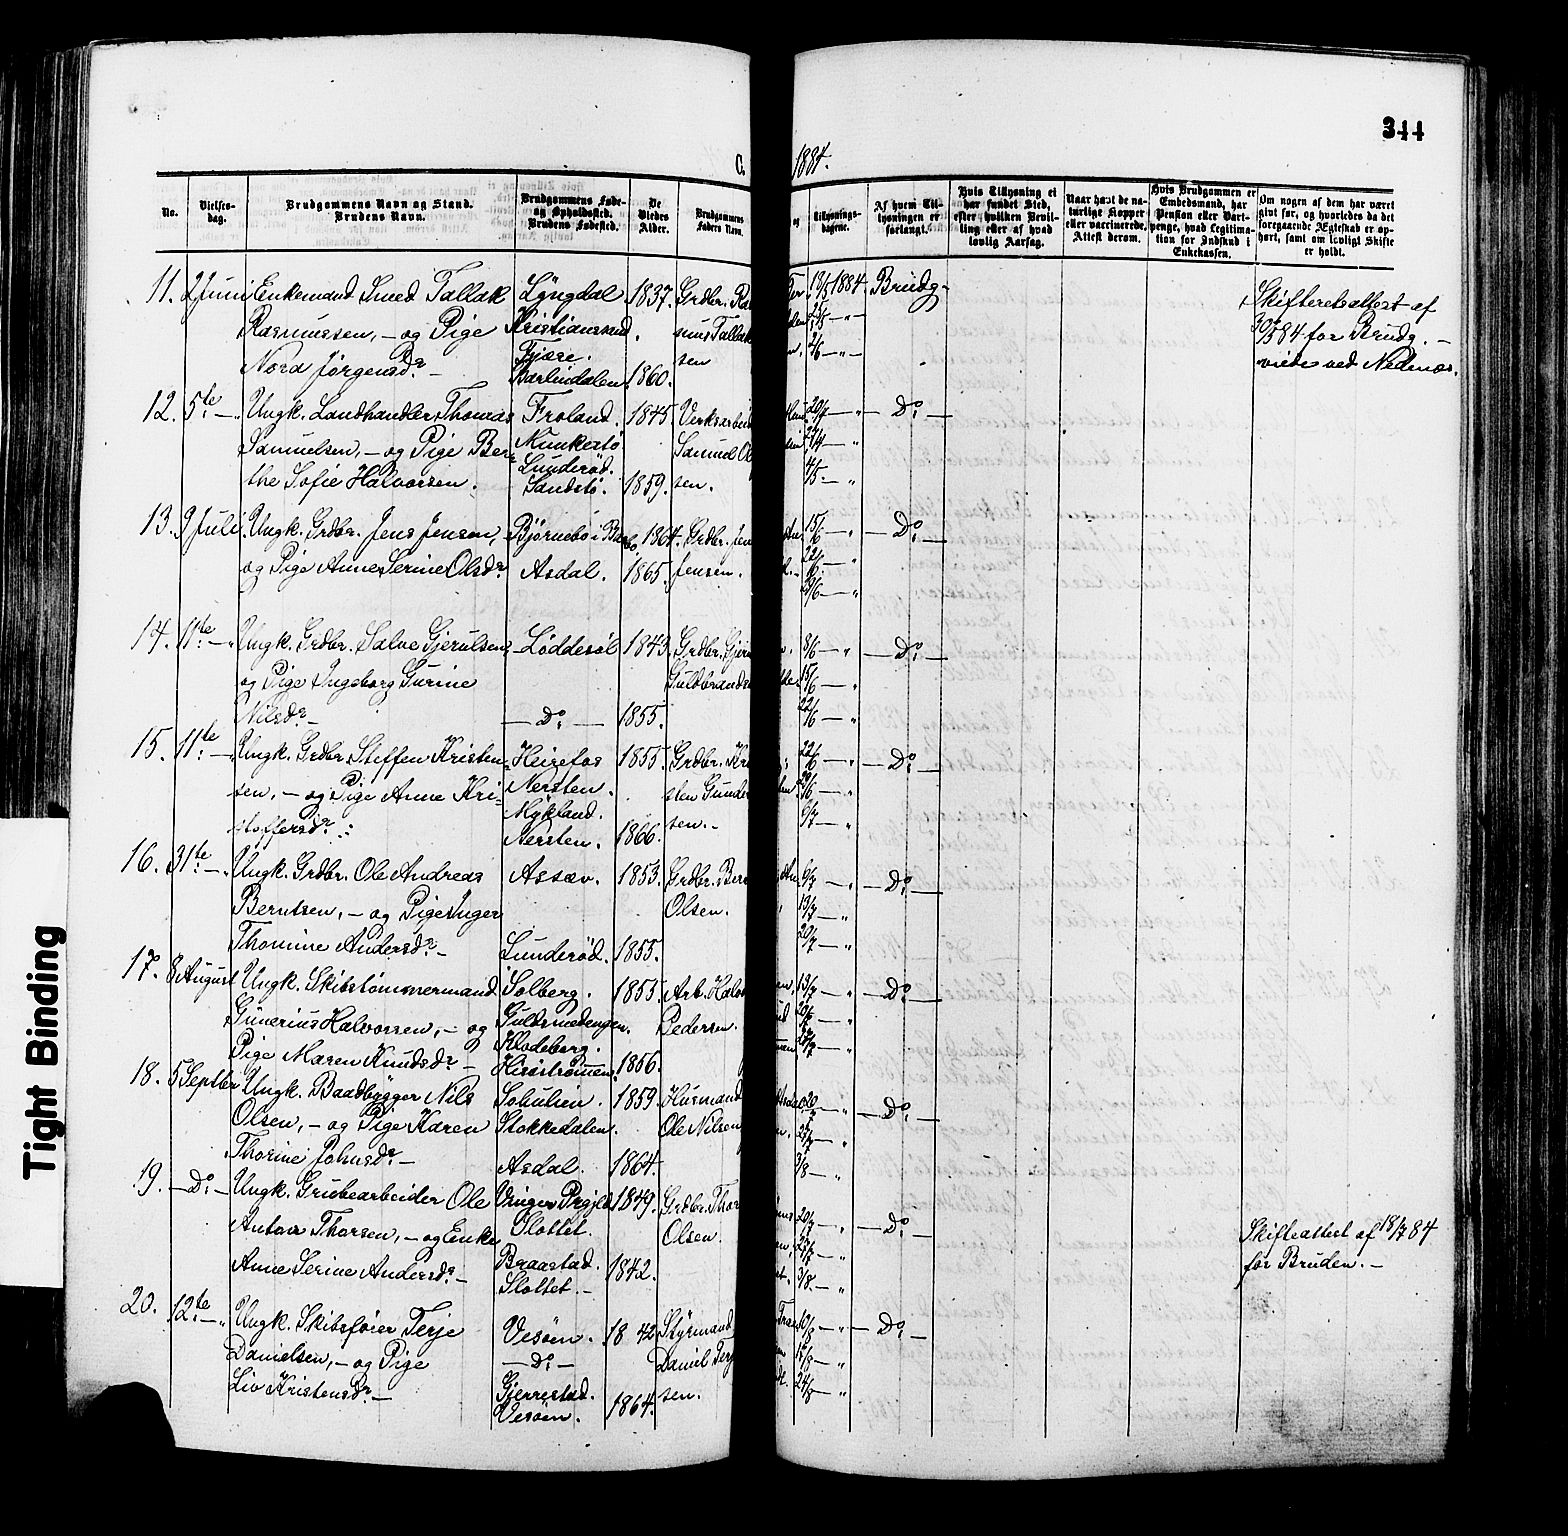 344
C. 1884.
No.
Vielses-
dag.
Brudgommens Navn og Stand.
Brudens Navn.
Brudgommens Føde-
og Opholdssted.
Brudens Fødested.
De
Viedes
Alder.
Brudgommens
Faders Navn.
og
Tillysnings-
dagene.
Af hvem Til-
lysningen er
forlangt.
Hvis Tillysning ei
har fundet Sted,
efter hvilken Bevil-
ling eller af hvad
lovlig Aarsag.
Naar havt de na-
turlige Kopper
eller vaccinerede.
Attest derom.
Hvis Brudgommen er
Embedsmand, har
Pension eller Vart-
penge, hvad Legitima-
tion for Indskud i
Enkekassen.
Om nogen af dem har været
givt før, og hvorledes da det
foregaaende Ægteskab er op-
hørt, samt om lovligt Skifte
er holdt.
11. 2 Juni Enkemand Smed Tallak Lyngdal 1837. Grdbr. Ras 1884. Brudg. Skifteretsattest af
Rasmussen, - og Pige Kristianssund mus Tallak 30/5 84 for Brudg. -
Nora Jørgensdr. - Fjære. sen 2/6 - " viede ved Nedenæs.
Barlindalen. 1860.
12. 5te - " Ungk. Landhandler Thomas Froland. 1845. Verksarbeid 20/4 - " - Do -
Samuelsen, - og Pige Ber= Munkestø Samuel Ol 27/4 - "
the Sofie Halvorsen. Lunderød. sen. 4/5 - "
Sandstø. 1859.
13. 9 Juli. Ungk. Grdbr. Jens Jensen, - Bjørnebo i Barbo. 1864. Grdbr. Jen 15/6 - " - Do -
og Pige Anne Serine Olsdr. Asdal. 1865. Jensen. 22/6 - "
29/6 - "
14. 11te - " Ungk. Grdbr. Salve Gjerulsen, Løddesøl 1843. Grdbr. Gjeru 8/6 - " - Do -
og Pige Ingeborg Gurine Guldbrands 15/6 - "
Nilsdr. - - Do - 1855. 22/6 - "
15. 11te - " Ungk. Grdbr. Steffen Kristen= Heirefos 1855. Grdbr. Kri 22/6 - " - Do -
sen, - og Pige Anne Kri= Nersten. sten Gunder 29/6 - "
stoffersdr. Mykland. sen. - 6/7 - "
Nersten. 1866.
16. 31te - " Ungk. Grdbr. Ole Andreas Assæv. 1853. Grdbr. Bern 6/7 - " - Do -
Berntsen, - og Pige Inger Olsen. 13/7 - "
Thomine Andersdr. - Lunderød. 1855. 20/7 - "
17. 8 August Ungk. Skibstømmermand Solberg. 1855. Arb. Halv 13/7 - " - Do -
Gunerius Halvorsen, - og Guldsmedengen. Pedersen. 20/7 - "
Pige Maren Knudsdr. - Klodeberg. 27/7 - "
Hisøstrømmen. 1856.
18. 5 Septbr Ungk. Baadbygger Nils 1859. Husmand 20/7 - " - Do -
Olsen, - og Pige Karen Stokkedalen. Ole Nilsen 27/7 - "
Thorine Johnsdr. - Asdal. 1864. 3/8 - "
19. - Do - Ungk. Grubearbeider Ole 1849. Grdbr. Thor 20/7 - " - Do - Skifteattest af 18/7 84
Anton Thorsen, - og Enke Slottet. Olsen. 27/7 - " for Bruden. -
Anne Serine Andersdr. - Braastad. 1842. 3/8. - "
Slottet. -
20. 12te - " Ungk. Skibsfører Terje Vesøen. 1842 Styrmand 10/8 - " - Do -
Danielsen, - og Pige - Do - Daniel Terj 17/8 - "
Liv Kristensdr. - Gjerrestad. sen. 24/8 - "
Vesøen. 1864.
Tight Binding